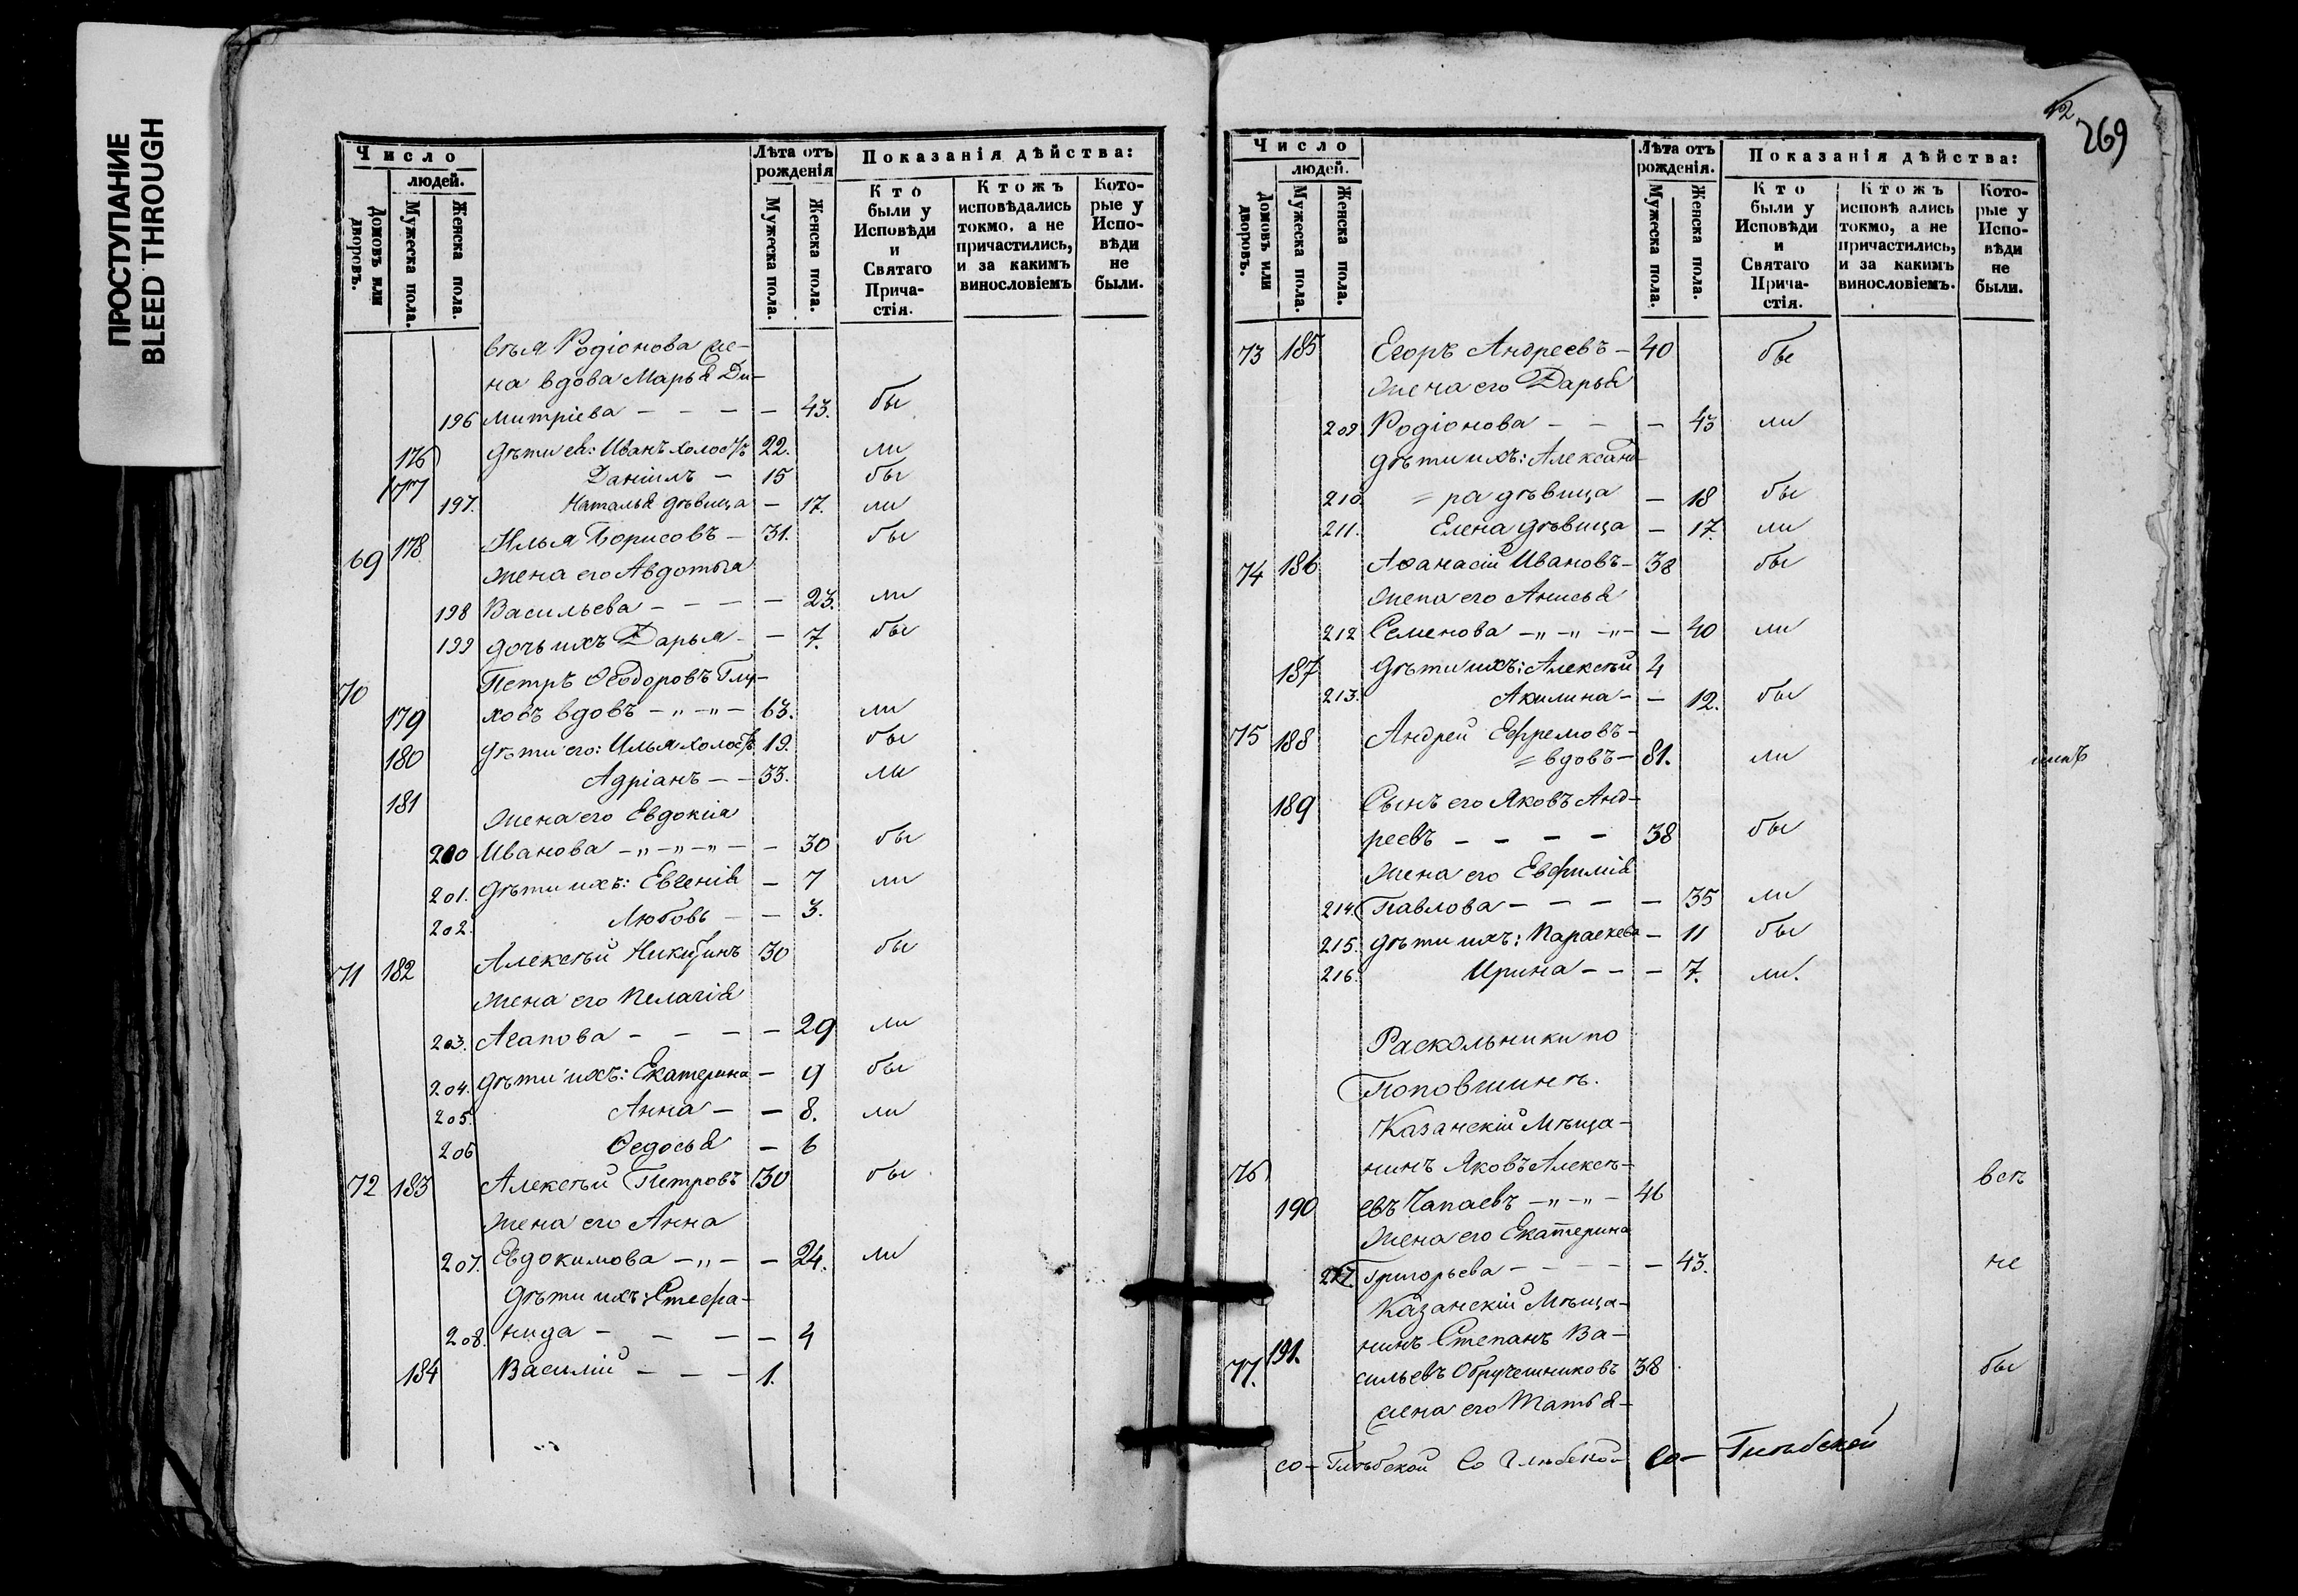 ПРОСТУПАНИЕ
BLEED THROUGH
Число
людей.
Домовъ или дворовъ.
Мужеска пола.
Женска пола.
Лѣта отъ рожденія
Мужеска пола.
Женска пола.
Показанія дѣйства:
Кто были у Исповѣди и Святаго Прича-стія.
Ктожъ исповѣдались токмо. а не причастились, и за какимъ винословіемъ
Кото-рые у Испо-вѣди не были.
Родіонова же-
на вдова Марья Ди-
196 митріева - - - - 43. бы
176 дѣти ея: Иванъ холостъ 22. ли
177 Даніилъ - 15 бы
197. Наталья дѣвица - 17. ли
69 178 Илья Борисовъ - 31. бы
жена его Авдотья
198 Васильева - - - - 23. ли
199 дочь ихъ Дарья - - 7. бы
70 Петръ Ѳеодоровъ Глу-
179 ховъ вдовъ -„-„- 63. ли
180 дѣти его: Илья холостъ 19. бы
181 Адріанъ - - 33. ли
жена его Евдокія
200 Иванова -„-„-„- - 30 бы
201. дѣти ихъ: Евгенія - 7 ли
202. Любовь - - 3.
71 182 Алексѣй Никитинъ 30 бы
жена его Пелагія
203. Агапова - - - - 29 ли
204. дѣти ихъ: Екатерина - 9 бы
205. Анна - - 8. ли
206 Ѳедосья - 6
72 183 Алексѣй Петровъ 30 бы
жена его Анна
207. Евдокимова -„- - 24. ли
дѣти ихъ: Стефа-
208. нида - - - - 4
184 Василій - - - 1.
12.
269
Число
людей.
Домовъ или дворовъ.
Мужеска пола.
Женска пола.
Лѣта отъ рожденія.
Мужеска пола.
Женска пола.
Показанія дѣйства:
Кто были у Исповѣди и Святаго Прича-стія.
Ктожъ исповѣ ались токмо, а не причастились, и за какимъ винословіемъ.
Кото-рые у Испо-вѣди не были.
73 185 Егоръ Андреевъ - 40 бы
жена его Дарья
209. Родіонова - - - 43 ли
дѣти ихъ: Александ-
210. = ра дѣвица - 18 бы
211. Елена дѣвица - 17. ли
74 186 Аѳанасій Ивановъ - 38 бы
жена его Анисья
212 Семенова -„-„-„- - 40 ли
187 дѣти ихъ: Алексѣй 4
213. Акилина - - 12. бы
75 188 Андрей Ефремовъ -
= вдовъ - 81. ли
189 Сынъ его Яковъ Анд-
реевъ - - - - 38 бы
жена его Евфимія
214. Павлова - - - - 35 ли
215. дѣти ихъ: Параскева - 11 бы
216. Ирина - - - 7. ли.
Раскольники по
Поповщинѣ.
Казанскій Мѣща-
76 нинъ Яковъ Алексѣ- всѣ
190 евъ Чапаевъ -„-„- 46
жена его Екатерина
217. Григорьева - - - - - 43. не
Казанскій Мѣща-
191. нинъ Степанъ Ва-
77. сильевъ Обручешниковъ 38 бы
жена его Татья-